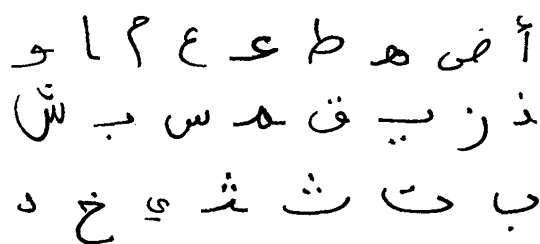 أ ض ه ط ع ع م ا و
ذ ز ي ق م س ب ش
ب ت ث ث ي خ د